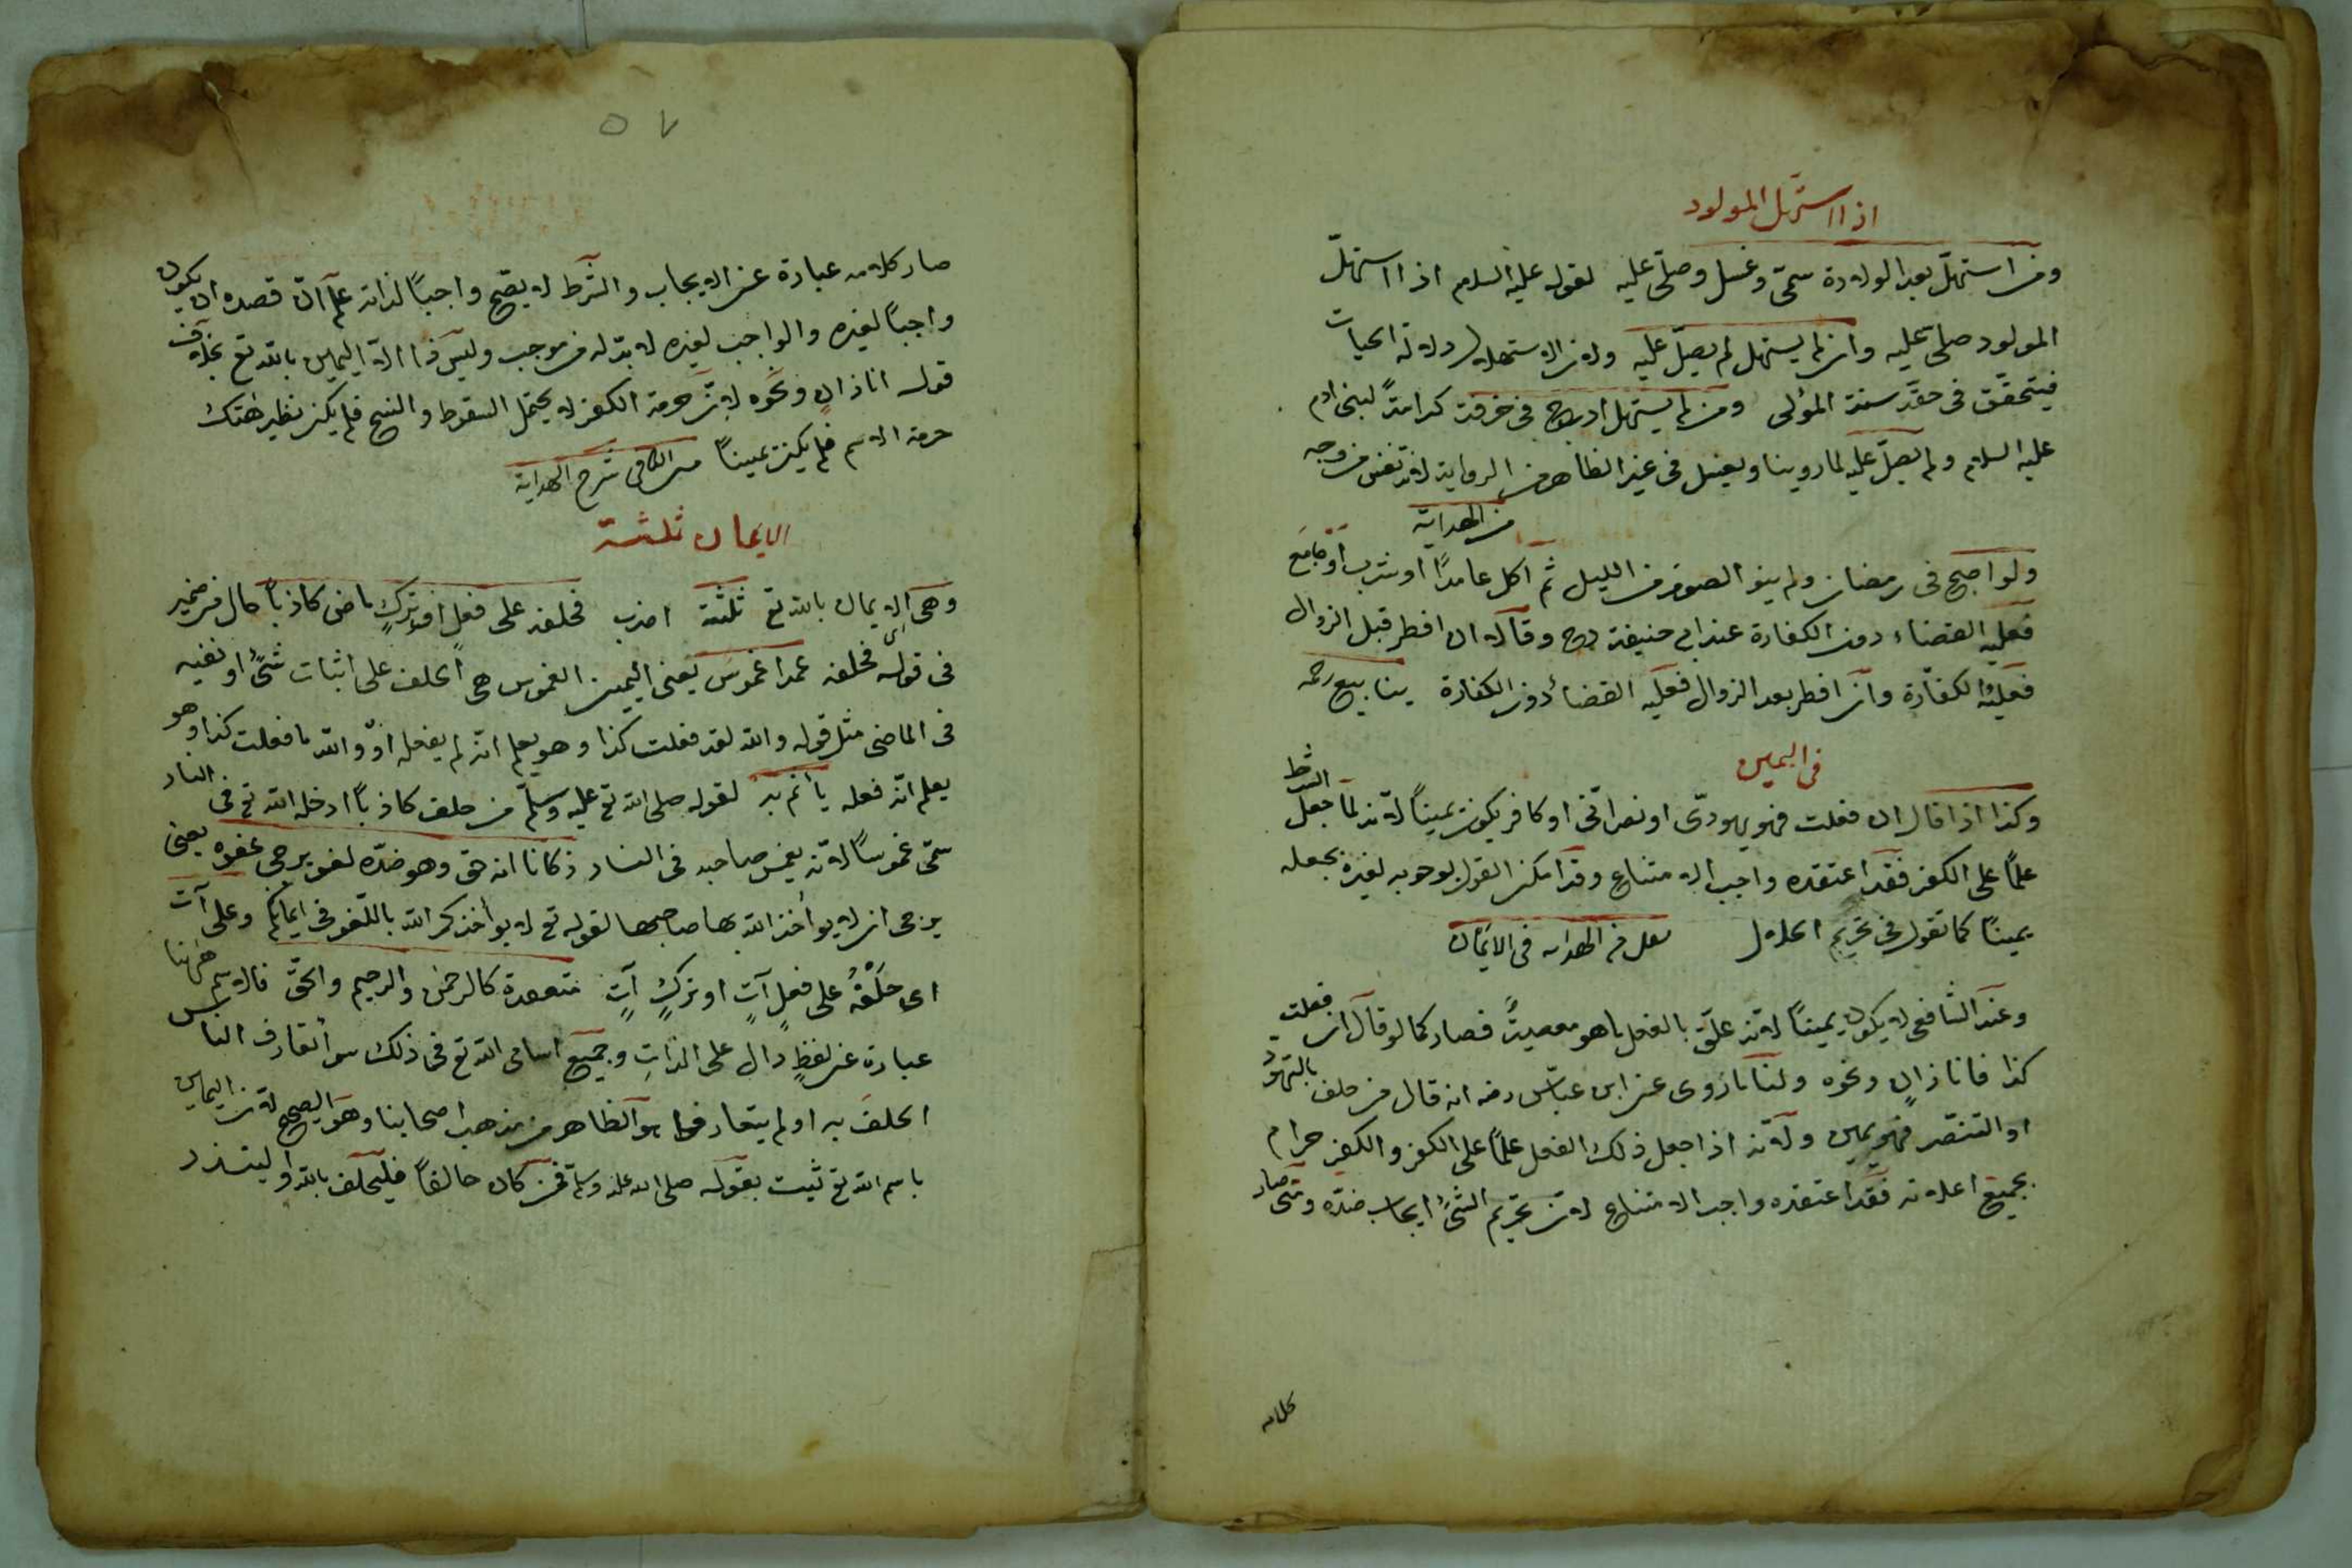 اذا استهل المولود
ومن استهلّ بعد الولادة سمّى وغسل وصلّى عليه لقوله عليه السلام اذا استهلّ
المولود صلى عليه وان لم يستهل لم يصلّ عليه ولان الاستهلال دلالة الحيات
فيتحقّق فى حقّه سنة المولى ومن لم يستهل ادرج فى خرقة كرامةً لبنى ادم
عليه السلام ولم يصلّ عليه لما روينا ويغسل فى غير الظاهر من الرواية لانه نفس من وجه
من الهداية
ولو اصبح فى رمضان ولم ينو الصوم من الليل ثم اكل عامدًا او شرب او جامع
فعليه القضاء دون الكفارة عند ابى حنيفة رح وقالا ان افطر قبل الزوال
فعليه الكفّارة وان افطر بعد الزوال فعليه القضاء دون الكفارة ينابيع رحمه
فى اليمين
وكذا اذا قال ان فعلت فهو يهودىّ او نصرانّى او كافر يكون يمينًا لانه لما جعل الشرط
علمًا على الكفر فقد اعتقده واجب الامتناع وقد امكن القول بوجوبه لغيره بجعله
يمينًا كما تقول فى تحريم الحلال نقل من الهدايه فى الايمان
وعند الشافعى لا يكون يمينًا لانه علّق بالفعل ما هو معصيةً فصار كما لو قال ان فعلت
كذا فانا زانٍ ونحوه ولنا ما روى عن ابن عبّاس رضه انه قال من حلف بالتهوّد
او التنصّر فهو يمين ولانه اذا جعل ذلك الفعل علمًا على الكفر والكفر حرام
بجميع اعلامه فقد اعتقده واجب الامتناع لان تحريم الشئ ايجاب ضدّه ومتى صار
كلامه
٥٧
صار كلامه عبارة عن الايجاب والشرط لا يصحّ واجبًا لذاته علم انّ قصده ان يكون
واجبًا لغيره والواجب لغيره لا بدّ له من موجب وليس ذا الا اليمين بالله تع بخلاف
قوله انا زان ونحوه لان حرمة الكفر لا يحتمل السقوط والنسخ فلم يكن نظير هتك
حرمة الاسم فلم يكن يمينًا من الكافى شرح الهداية
الايمان ثلثة
وهى الايمان بالله تع ثلثة اضرب فحلفه على فعلٍ او تركٍ ماض كاذبًا حال من ضمير
فى قوله فحلفه عمدا غموس يعنى اليمين الغموس هى الحلف على اثبات شئ او نفيه
فى الماضى مثل قوله والله لقد فعلت كذا وهو يعلم انه لم يفعله او والله ما فعلت كذا وهو
يعلم انه فعله يأثم به لقوله صلى الله تع عليه وسلّم من حلف كاذبًا ادخله الله تع فى النار
سمّى غموسًا لانه يغمس صاحبه فى النار ظانا انه حق وهو ضدّه لغو يرجى عفوه يعنى
يرجى ان لا يؤاخذ الله بها صاحبها لقوله تع لا يواخذكم الله باللغو فى ايمانكم وعلى آت
اى حَلْفُهُ على فعلٍ آتٍ او تركٍ آتٍ منعقدة كالرحمن والرحيم والحقّ فالاسم ههنا
عبارة عن لفظٍ دال على الذاتِ وجميع اسامى الله تع فى ذلك سوا تعارف الناس
الحلفَ به او لم يتعارفوا هو الظاهر من مذهب اصحابنا وهو الصحيح لان اليمين
باسم الله تع ثبت بقوله صلى الله عليه وسلم فمن كان حالفًا فليحلف بالله او ليذر